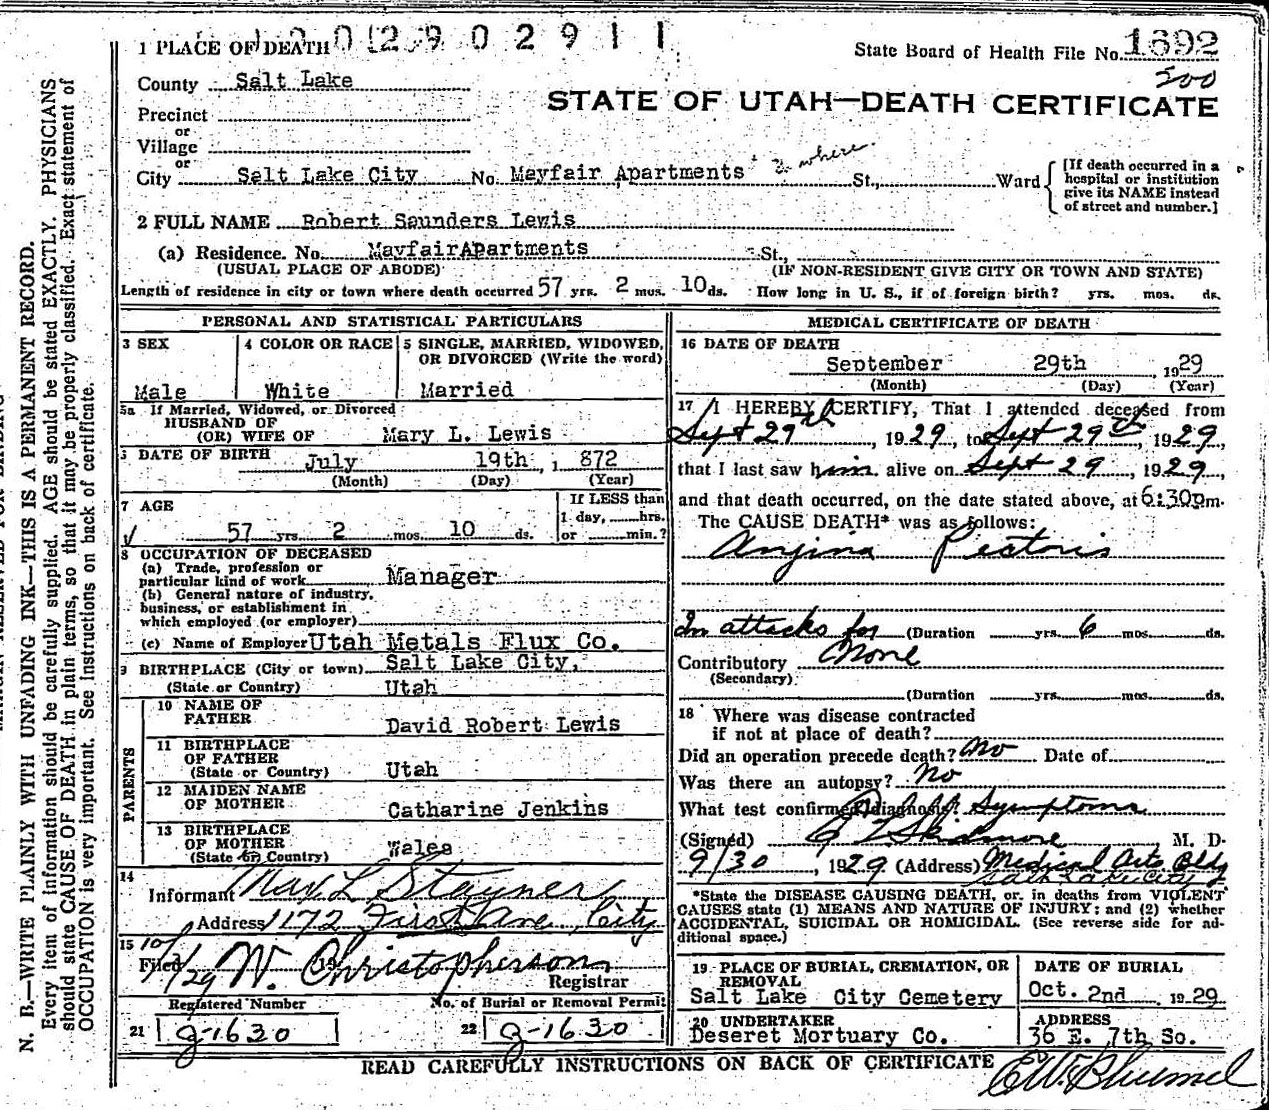 1 PLACE OF DEATH 0 2 9 0 2 9 1 1
State Board of Health File No. 1692
500
County Salt Lake
STATE OF UTAH—DEATH CERTIFICATE
Precinct
or
Village
or
City Salt Lake City No. Mayfair Apartments where St., Ward
[If death occurred in a
hospital or institution
give its NAME instead
of street and number.]
2 FULL NAME Robert Saunders Lewis
(a) Residence. No. MayfairApartments St.,
(USUAL PLACE OF ABODE) (IF NON-RESIDENT GIVE CITY OR TOWN AND STATE)
Length of residence in city or town where death occurred 57 yrs. 2 mos. 10 ds. How long in U. S., if of foreign birth? yrs. mos. ds.
PERSONAL AND STATISTICAL PARTICULARS
3 SEX
Male
4 COLOR OR RACE
White
5 SINGLE, MARRIED, WIDOWED,
OR DIVORCED (Write the word)
Married
5a If Married, Widowed, or Divorced
HUSBAND OF
(OR) WIFE OF Mary L. Lewis
DATE OF BIRTH July 19th, 1 872
(Month) (Day) (Year)
7 AGE
57 yrs. 2 mos. 10 ds.
If LESS than
1 day, hrs.
or min.?
8 OCCUPATION OF DECEASED
(a) Trade, profession or
particular kind of work Manager
(b) General nature of industry,
business, or establishment in
which employed (or employer)
(c) Name of Employer Utah Metals Flux Co.
9 BIRTHPLACE (City or town) Salt Lake City,
(State or Country) Utah
PARENTS
10 NAME OF
FATHER David Robert Lewis
11 BIRTHPLACE
OF FATHER
(State or Country) Utah
12 MAIDEN NAME
OF MOTHER Catharine Jenkins
13 BIRTHPLACE
OF MOTHER
(State or Country) Wales
14
Informant Mary L Stayner
Address 1172 First Ave, City
15
Filed 10/1/29 19 W. Christopherson
Registrar
Registered Number
21 g-1630
No. of Burial or Removal Permit
22 g-1630
MEDICAL CERTIFICATE OF DEATH
16 DATE OF DEATH
September 29th 1929
(Month) (Day) (Year)
17 I HEREBY CERTIFY, That I attended deceased from
Sept 29th, 1929, to Sept 29th, 1929
that I last saw him alive on Sept 29, 1929,
and that death occurred, on the date stated above, at 6:30pm.
The CAUSE DEATH* was as follows:
Angina Pectoris
In attacks for (Duration yrs. 6 mos. ds.
Contributory None
(Secondary)
(Duration yrs. mos. ds.
18 Where was disease contracted
if not at place of death?
Did an operation precede death? No Date of
Was there an autopsy? No
What test confirmed diagnosis? Symptoms
(Signed) Skidmore M. D.
9/30, 1929 (Address) Medical Arts Bldg
Salt Lake City
*State the DISEASE CAUSING DEATH, or, in deaths from VIOLENT
CAUSES state (1) MEANS AND NATURE OF INJURY; and (2) whether
ACCIDENTAL, SUICIDAL OR HOMICIDAL. (See reverse side for ad-
ditional space.)
19 PLACE OF BURIAL, CREMATION, OR
REMOVAL
Salt Lake City Cemetery
DATE OF BURIAL
Oct. 2nd 1929
20 UNDERTAKER
Deseret Mortuary Co.
ADDRESS
36 E. 7th So.
READ CAREFULLY INSTRUCTIONS ON BACK OF CERTIFICATE
N. B.—WRITE PLAINLY WITH UNFADING INK—THIS IS A PERMANENT RECORD.
Every item of information should be carefully supplied. AGE should be stated EXACTLY. PHYSICIANS
should state CAUSE OF DEATH in plain terms, so that it may be properly classified. Exact statement of
OCCUPATION is very important. See instructions on back of certificate.